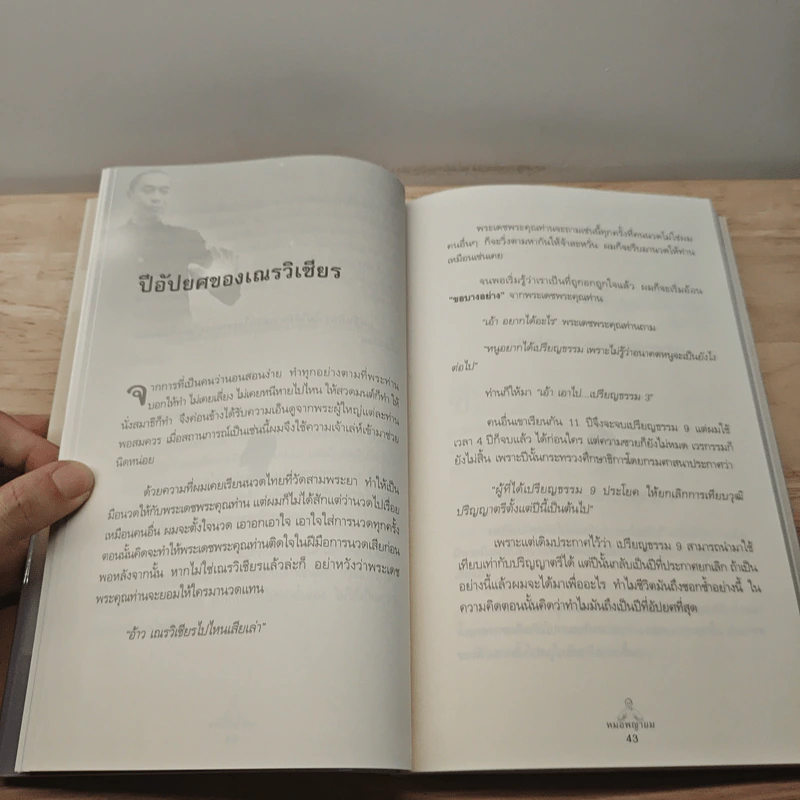 ปีอัปยศของเณรวิเชียร
จากการที่เป็นคนว่านอนสอนง่าย ทำทุกอย่างตามที่พระท่าน
บอกให้ทำ ไม่เคยเลี่ยง ไม่เคยหนีหายไปไหน ให้สวดมนต์ก็ทำ ให้
นั่งสมาธิก็ทำ จึงค่อนข้างได้รับความเอ็นดูจากพระผู้ใหญ่แต่ละท่าน
พอสมควร เมื่อสถานการณ์เป็นเช่นนี้ผมจึงใช้ความเจ้าเล่ห์เข้ามาช่วย
นิดหน่อย
ด้วยความที่ผมเคยเรียนนวดไทยที่วัดสามพระยา ทำให้เป็น
มือนวดให้กับพระเดชพระคุณท่าน แต่ผมก็ไม่ได้สักแต่ว่านวดไปเรื่อย
เหมือนคนอื่น ผมจะตั้งใจนวด เอาอกเอาใจ เอาใจใส่การนวดทุกครั้ง
ตอนนั้นคิดจะทำให้พระเดชพระคุณท่านติดใจในฝีมือการนวดเสียก่อน
พอหลังจากนั้น หากไม่ใช่เณรวิเชียรแล้วล่ะก็ อย่าหวังว่าพระเดช
พระคุณท่านจะยอมให้ใครมานวดแทน
"อ้าว เณรวิเชียรไปไหนเสียเล่า"
พระเดชพระคุณท่านจะถามเช่นนี้ทุกครั้งที่คนนวดไม่ใช่ผม
คนอื่นๆ ก็จะวิ่งตามหากันให้จ้าละหวั่น ผมก็จะรีบมานวดให้ท่าน
เหมือนเช่นเคย
จนพอเริ่มรู้ว่าเราเป็นที่ถูกอกถูกใจแล้ว ผมก็จะเริ่มอ้อน
"ขอบางอย่าง" จากพระเดชพระคุณท่าน
"เอ้า อยากได้อะไร" พระเดชพระคุณท่านถาม
"หนูอยากได้เปรียญธรรม เพราะไม่รู้ว่าอนาคตหนูจะเป็นยังไง
ต่อไป"
ท่านก็ให้มา "เอ้า เอาไป...เปรียญธรรม 3"
คนอื่นเขาเรียนกัน 11 ปีจึงจะจบเปรียญธรรม 9 แต่ผมใช้
เวลา 4 ปีก็จบแล้ว ได้ก่อนใคร แต่ความซวยก็ยังไม่หมด เวรกรรมก็
ยังไม่สิ้น เพราะปีนั้นกระทรวงศึกษาธิการโดยกรมศาสนาประกาศว่า
"ผู้ที่ได้เปรียญธรรม 9 ประโยค ให้ยกเลิกการเทียบวุฒิ
ปริญญาตรีตั้งแต่ปีนี้เป็นต้นไป"
เพราะแต่เดิมประกาศไว้ว่า เปรียญธรรม 9 สามารถนำมาใช้
เทียบเท่ากับปริญญาตรีได้ แต่ปีนั้นกลับเป็นปีที่ประกาศยกเลิก ถ้าเป็น
อย่างนี้แล้วผมจะได้มาเพื่ออะไร ทำไมชีวิตมันถึงซอกช้ำอย่างนี้ ใน
ความคิดตอนนั้นคิดว่าทำไมมันถึงเป็นปีที่อัปยศที่สุด
หมอพญายม
43